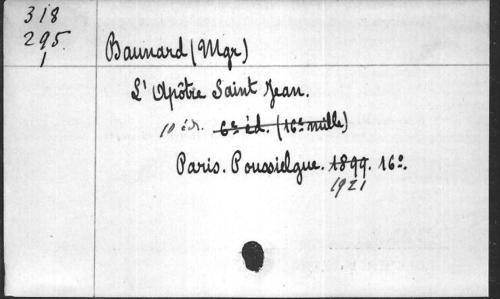 318
295
1
Baunard (Mgr)
L'Apôtre Saint Jean.
10 éd. 6e éd. (16e mille)
Paris. Poussielgue. 1899. 16o.
1921